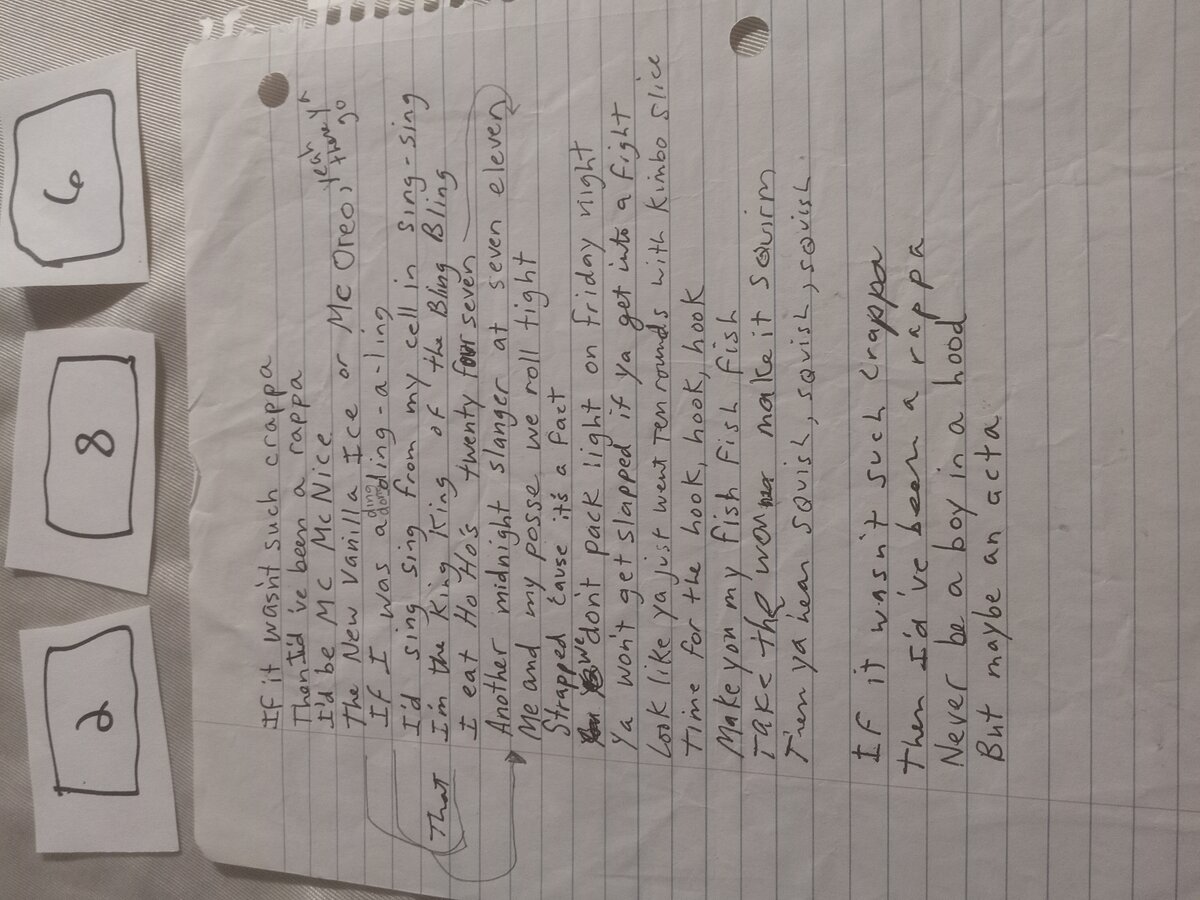 2 8 6
If it wasn't such crappa
Then I'd've been a rappa
I'd be MC McNice
The New Vanilla Ice or Mc Oreo, yeah yeah there ya go
If I was a ding dong ding-a-ling
I'd sing sing from my cell in sing-sing
That
I'm the King King of the Bling Bling
I eat Ho Ho's twenty four seven
Another midnight slanger at seven eleven
Me and my posse we roll tight
Strapped cause it's a fact
We don't pack light on Friday night
Ya won't get slapped if ya get into a fight
Look like ya just went Ten rounds with Kimbo Slice
Time for the hook, hook, hook
Make you my fish fish fish
Take the worm make it squirm
Then ya hear squish, squish, squish
If it wasn't such crappa
Then I'd've been a rappa
Never be a boy in a hood
But maybe an acta